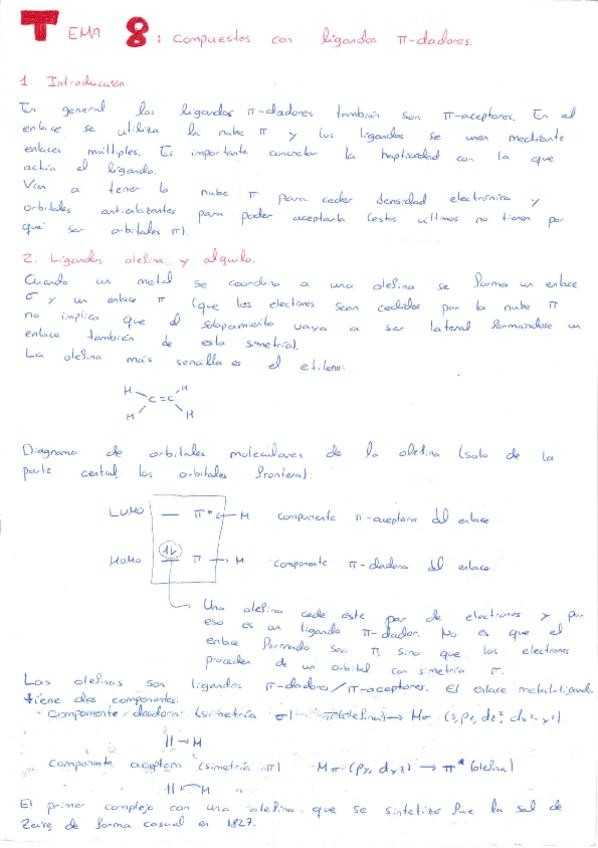 TEMA 8: Compuestos con ligandos π-dadores.
1. Introducción.
En general los ligandos π-dadores también son π-aceptores. En el
enlace se utiliza la nube π y los ligandos se unen mediante
enlaces múltiples. Es importante concretar la hapticidad con la que
actúa el ligando.
Van a tener la nube π para ceder densidad electrónica y
orbitales antienlazantes para poder aceptarla (estos últimos no tienen por
qué ser orbitales π).
2. Ligandos olefina y alquilo.
Cuando un metal se coordina a una olefina se forma un enlace
σ y un enlace π (que los electrones sean cedidos por la nube π
no implica que el solapamiento vaya a ser lateral formándose un
enlace también de esta simetría).
La olefina más sencilla es el etileno:
H H
C=C
H H
Diagrama de orbitales moleculares de la olefina (solo de la
parte central, los orbitales frontera):
LUMO — π* ← M componente π-aceptora del enlace
HOMO π → M componente π-dadora del enlace
Una olefina cede este par de electrones y por
eso es un ligando π-dador. No es que el
enlace formado sea π, sino que los electrones
proceden de un orbital con simetría π.
Las olefinas son ligandos π-dadores/π-aceptores. El enlace metal-ligando
tiene dos componentes:
- Componente dadora (simetría σ) π(olefina) → Mσ (s, pz, dz², dx²-y²)
|| → M
- Componente aceptora (simetría π) Mπ (py, dyz) → π* (olefina)
|| M
El primer complejo con una olefina que se sintetizó fue la sal de
Zeise, de forma casual en 1827.